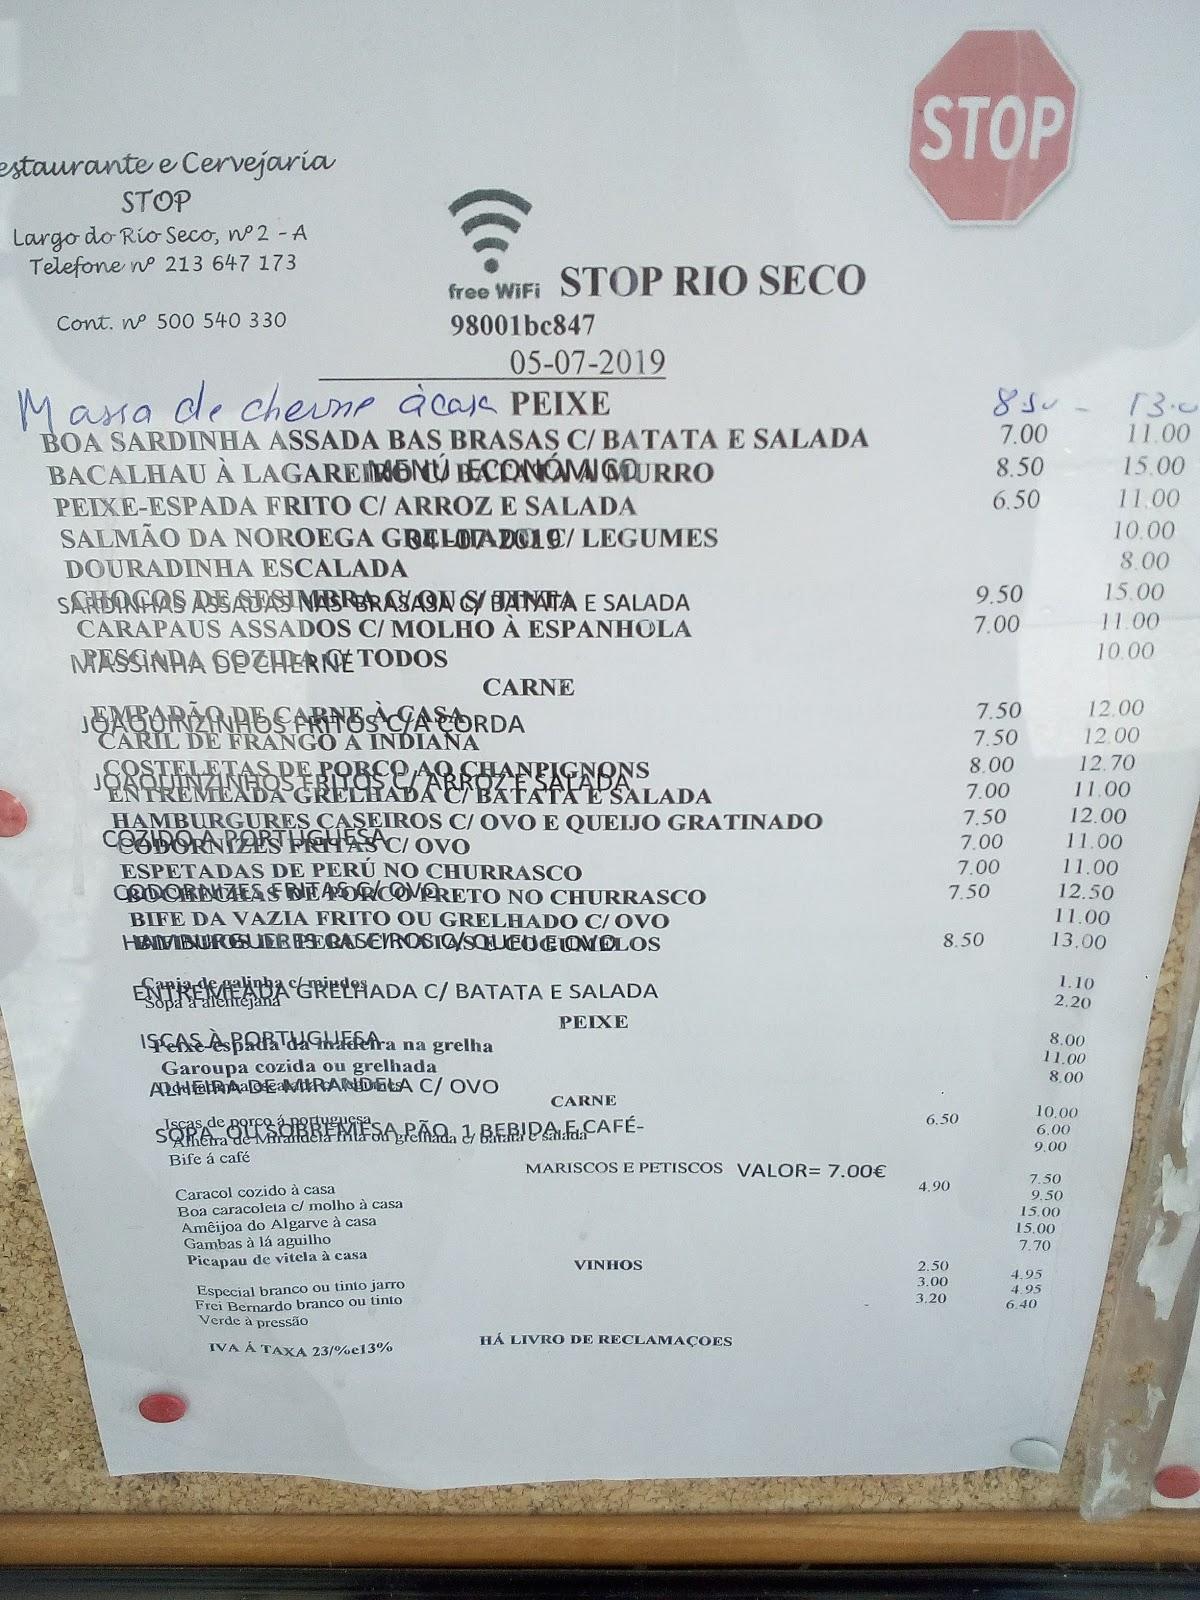 STOP
estaurante e Cervejaria
STOP
Largo do Rio Seco, nº 2 - A
Telefone nº 213 647 173
Cont. nº 500 540 330
free WiFi STOP RIO SECO
98001bc847
05-07-2019
Massa de cherne à casa PEIXE 8.50 - 13.0
BOA SARDINHA ASSADA BAS BRASAS C/ BATATA E SALADA 7.00 11.00
BACALHAU À LAGAREIRO C/ BATATA A MURRO 8.50 15.00
MENÚ ECONÓMICO
PEIXE-ESPADA FRITO C/ ARROZ E SALADA 6.50 11.00
SALMÃO DA NOROEGA GRELHADO C/ LEGUMES 10.00
04-07-2019
DOURADINHA ESCALADA 8.00
CHOCOS DE SESIMBRA C/ OU S/ TINTA 9.50 15.00
SARDINHAS ASSADAS NAS BRASASA C/ BATATA E SALADA
CARAPAUS ASSADOS C/ MOLHO À ESPANHOLA 7.00 11.00
PESCADA COZIDA C/ TODOS 10.00
MASSINHA DE CHERNE
CARNE
EMPADÃO DE CARNE À CASA 7.50 12.00
JOAQUINZINHOS FRITOS C/A CORDA
CARIL DE FRANGO A INDIANA 7.50 12.00
COSTELETAS DE PORCO AO CHANPIGNONS 8.00 12.70
JOAQUINZINHOS FRITOS C/ ARROZ E SALADA
ENTREMEADA GRELHADA C/ BATATA E SALADA 7.00 11.00
HAMBURGURES CASEIROS C/ OVO E QUEIJO GRATINADO 7.50 12.00
COZIDO A PORTUGUESA
CODORNIZES FRITAS C/ OVO 7.00 11.00
ESPETADAS DE PERÚ NO CHURRASCO 7.00 11.00
CODORNIZES FRITAS C/ OVO
BOCHECHAS DE PORCO PRETO NO CHURRASCO 7.50 12.50
BIFE DA VAZIA FRITO OU GRELHADO C/ OVO 11.00
HAMBURGUERES CASEIROS C/ QUEIJ E OVO
DE PERU C/ E COGUMELOS 8.50 13.00
Canja de galinha c/ miudos 1.10
ENTREMEADA GRELHADA C/ BATATA E SALADA
Sopa à alentejana 2.20
PEIXE
ISCAS À PORTUGUESA
Peixe-espada da madeira na grelha 8.00
Garoupa cozida ou grelhada 11.00
ALHEIRA DE MIRANDELA C/ OVO
8.00
CARNE
Iscas de porco á portuguesa 6.50 10.00
SOPA OU SOBREMESA PÃO 1 BEBIDA E CAFÉ-
Alheira de Mirandela frita ou grelhada c/ batata e salada 6.00
Bife á café 9.00
MARISCOS E PETISCOS VALOR= 7.00€
Caracol cozido à casa 4.90 7.50
Boa caracoleta c/ molho à casa 9.50
Amêijoa do Algarve à casa 15.00
Gambas à lá aguilho 15.00
Picapau de vitela à casa 7.70
VINHOS
Especial branco ou tinto jarro 2.50 4.95
Frei Bernardo branco ou tinto 3.00 4.95
Verde à pressão 3.20 6.40
IVA Á TAXA 23/%e13% HÁ LIVRO DE RECLAMAÇOES